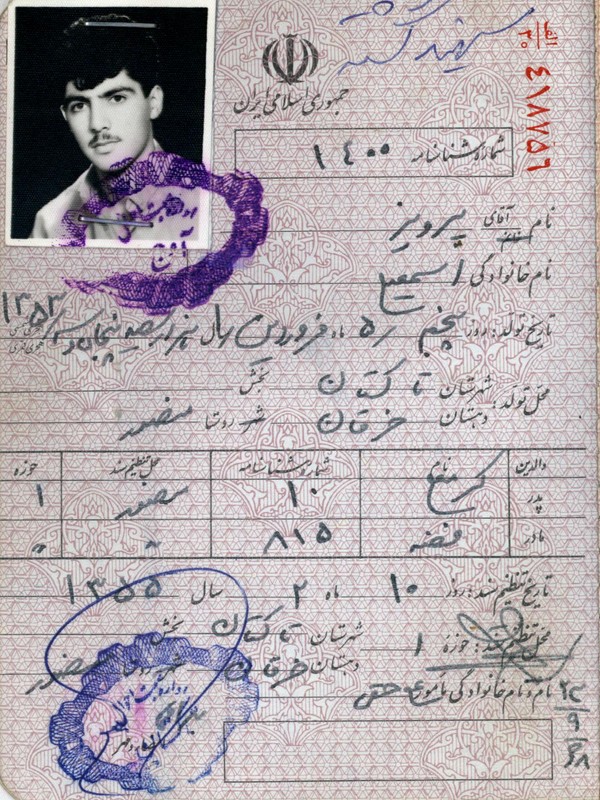 شهید گشته
الف
۳۰
۴۱۸۷۵۶
جمهوری اسلامی ایران
شماره شناسنامه ۱۴۰۰
نام آقای پرویز
نام خانوادگی اسمعیلی
تاریخ تولد: روز پنجم ۵ ماه فروردین سال هزار سیصد و پنجاه و سه ۱۳۵۳
محل تولد: شهرستان تاکستان بخش
دهستان خرقان شهر روستا
والدین نام شماره شناسنامه محل تنظیم سند حوزه
پدر ۱۰ ۱
مادر فضه ۸۱۵ " "
تاریخ تنظیم سند: روز ۱۰ ماه ۲ سال ۱۳۵۵
محل تنظیم سند: حوزه ۱ شهرستان تاکستان بخش
دهستان خرقان شهر روستا
نام و نام خانوادگی مأمور